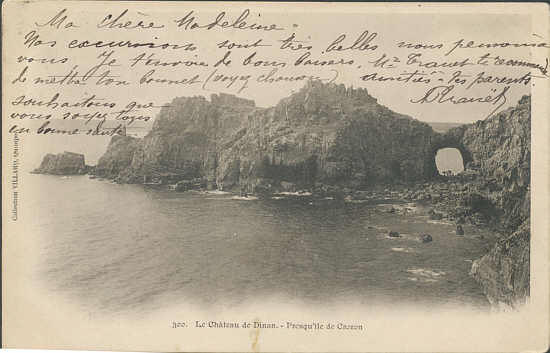 Ma Chère Madeleine
Nos excursions sont très belles nous pensons à
vous. Je t'envoie de bons baisers. Mr Trauët te recommande
de mettre ton bonnet (voyez chausson) amitiés à tes parents.
souhaitons que ATrauët
vous soyez tous
en bonne santé
Collection VILLARD, Quimper
300. Le Château de Dinan. - Presqu'île de Crozon